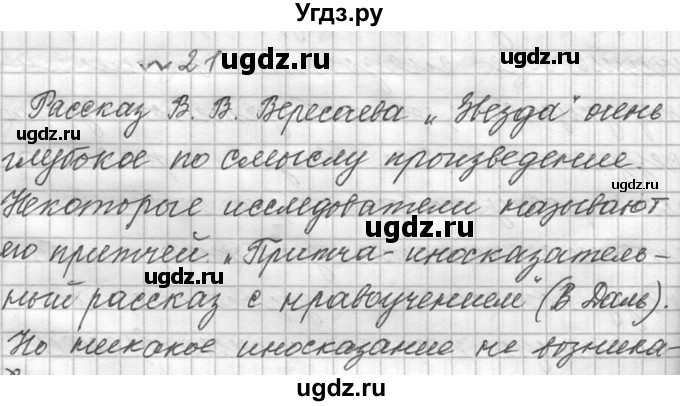 Угдз.ру
№21
Рассказ В. В. Вересаева „Звезда" очень
глубокое по смыслу произведение.
Некоторые исследователи называют
его притчей „Притча- иносказатель-
ный рассказ с нравоучением" (В Даль).
Но никакое иносказание не возника-
ugdz.ru
ugdz.ru
ugdz.ru
ugdz.ru
ugdz.ru
ugdz.ru
ugdz.ru
ugdz.ru